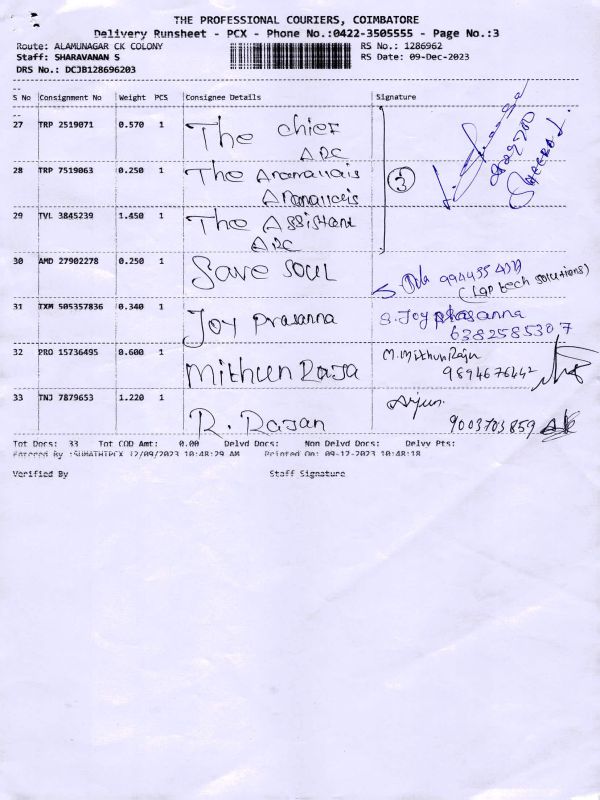 THE PROFESSIONAL COURIERS, COIMBATORE
Delivery Runsheet - PCX - Phone No.:0422-3505555 - Page No.:3
Route: ALAMUNAGAR CK COLONY RS No.: 1286962
Staff: SHARAVANAN S RS Date: 09-Dec-2023
DRS No.: DCJB128696203
S No Consignment No Weight PCS Consignee Details Signature
27 TRP 2519071 0.570 1 The chief ADC
28 TRP 7519063 0.250 1 The
29 TVL 3845239 1.450 1 The Assistant ADC
3
30 AMD 27902278 0.250 1 Save SOUL
(LGP tech solutions)
31 TXM 505357836 0.340 1 Joy Prasanna S. Joy Prasanna
6382585307
32 PRO 15736495 0.600 1 Mithun Raja M. Mithun Raju
9894676442
33 TNJ 7879653 1.220 1 R. Rajan Arjun
9003703859
Tot Docs: 33 Tot COD Amt: 0.00 Delvd Docs: Non Delvd Docs: Delvy Pts:
Entered By :SUMATHIPCX 12/09/2023 10:48:29 AM Printed On: 09-12-2023 10:48:18
Verified By Staff Signature